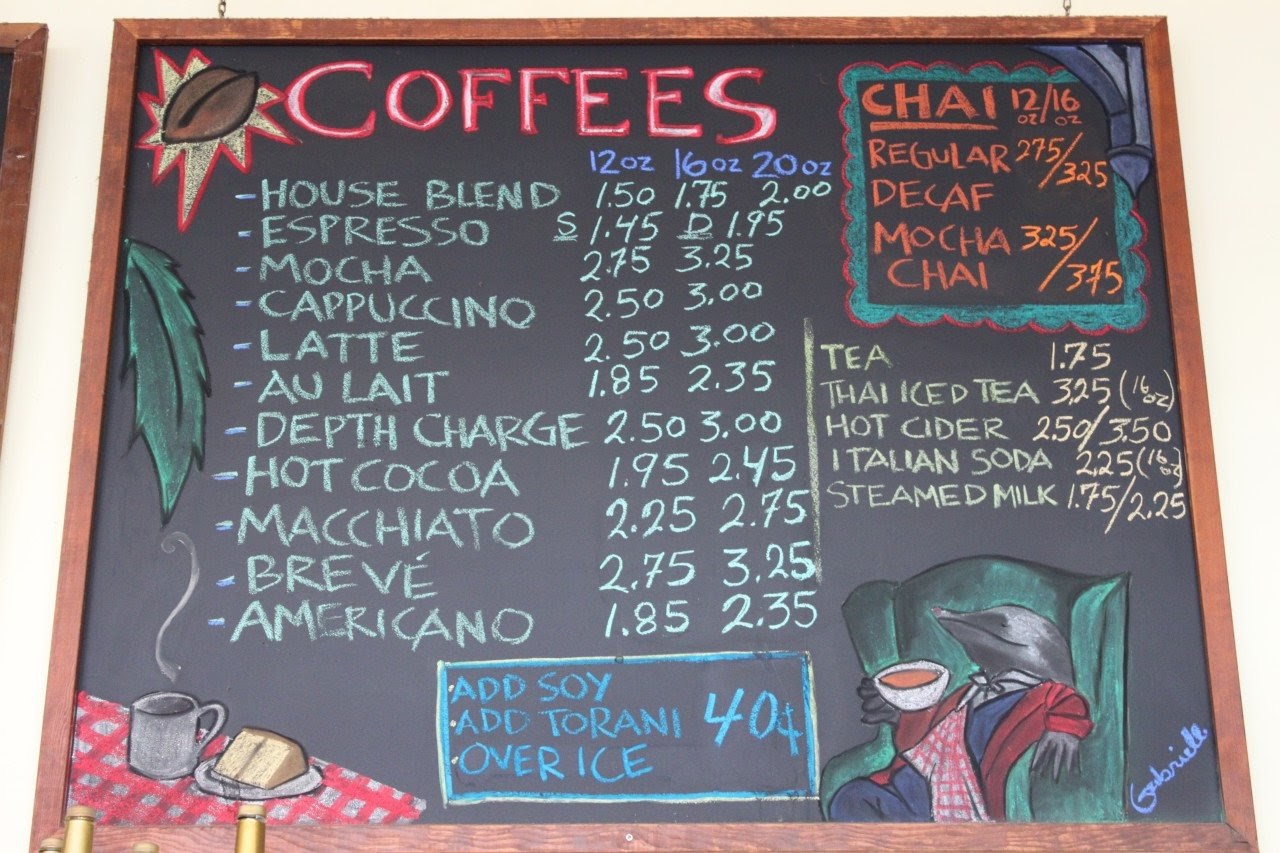 COFFEES
12oz 16oz 20oz
- HOUSE BLEND 1.50 1.75 2.00
- ESPRESSO S 1.45 D 1.95
- MOCHA 2.75 3.25
- CAPPUCCINO 2.50 3.00
- LATTE 2.50 3.00
- AU LAIT 1.85 2.35
- DEPTH CHARGE 2.50 3.00
- HOT COCOA 1.95 2.45
- MACCHIATO 2.25 2.75
- BREVÉ 2.75 3.25
- AMERICANO 1.85 2.35
ADD SOY
ADD TORANI 40¢
OVER ICE
CHAI 12oz/16oz
REGULAR 275/325
DECAF
MOCHA 325/
CHAI /375
TEA 1.75
THAI ICED TEA 3.25 (16oz)
HOT CIDER 2.50/3.50
ITALIAN SODA 2.25 (16oz)
STEAMED MILK 1.75/2.25
Gabrielle